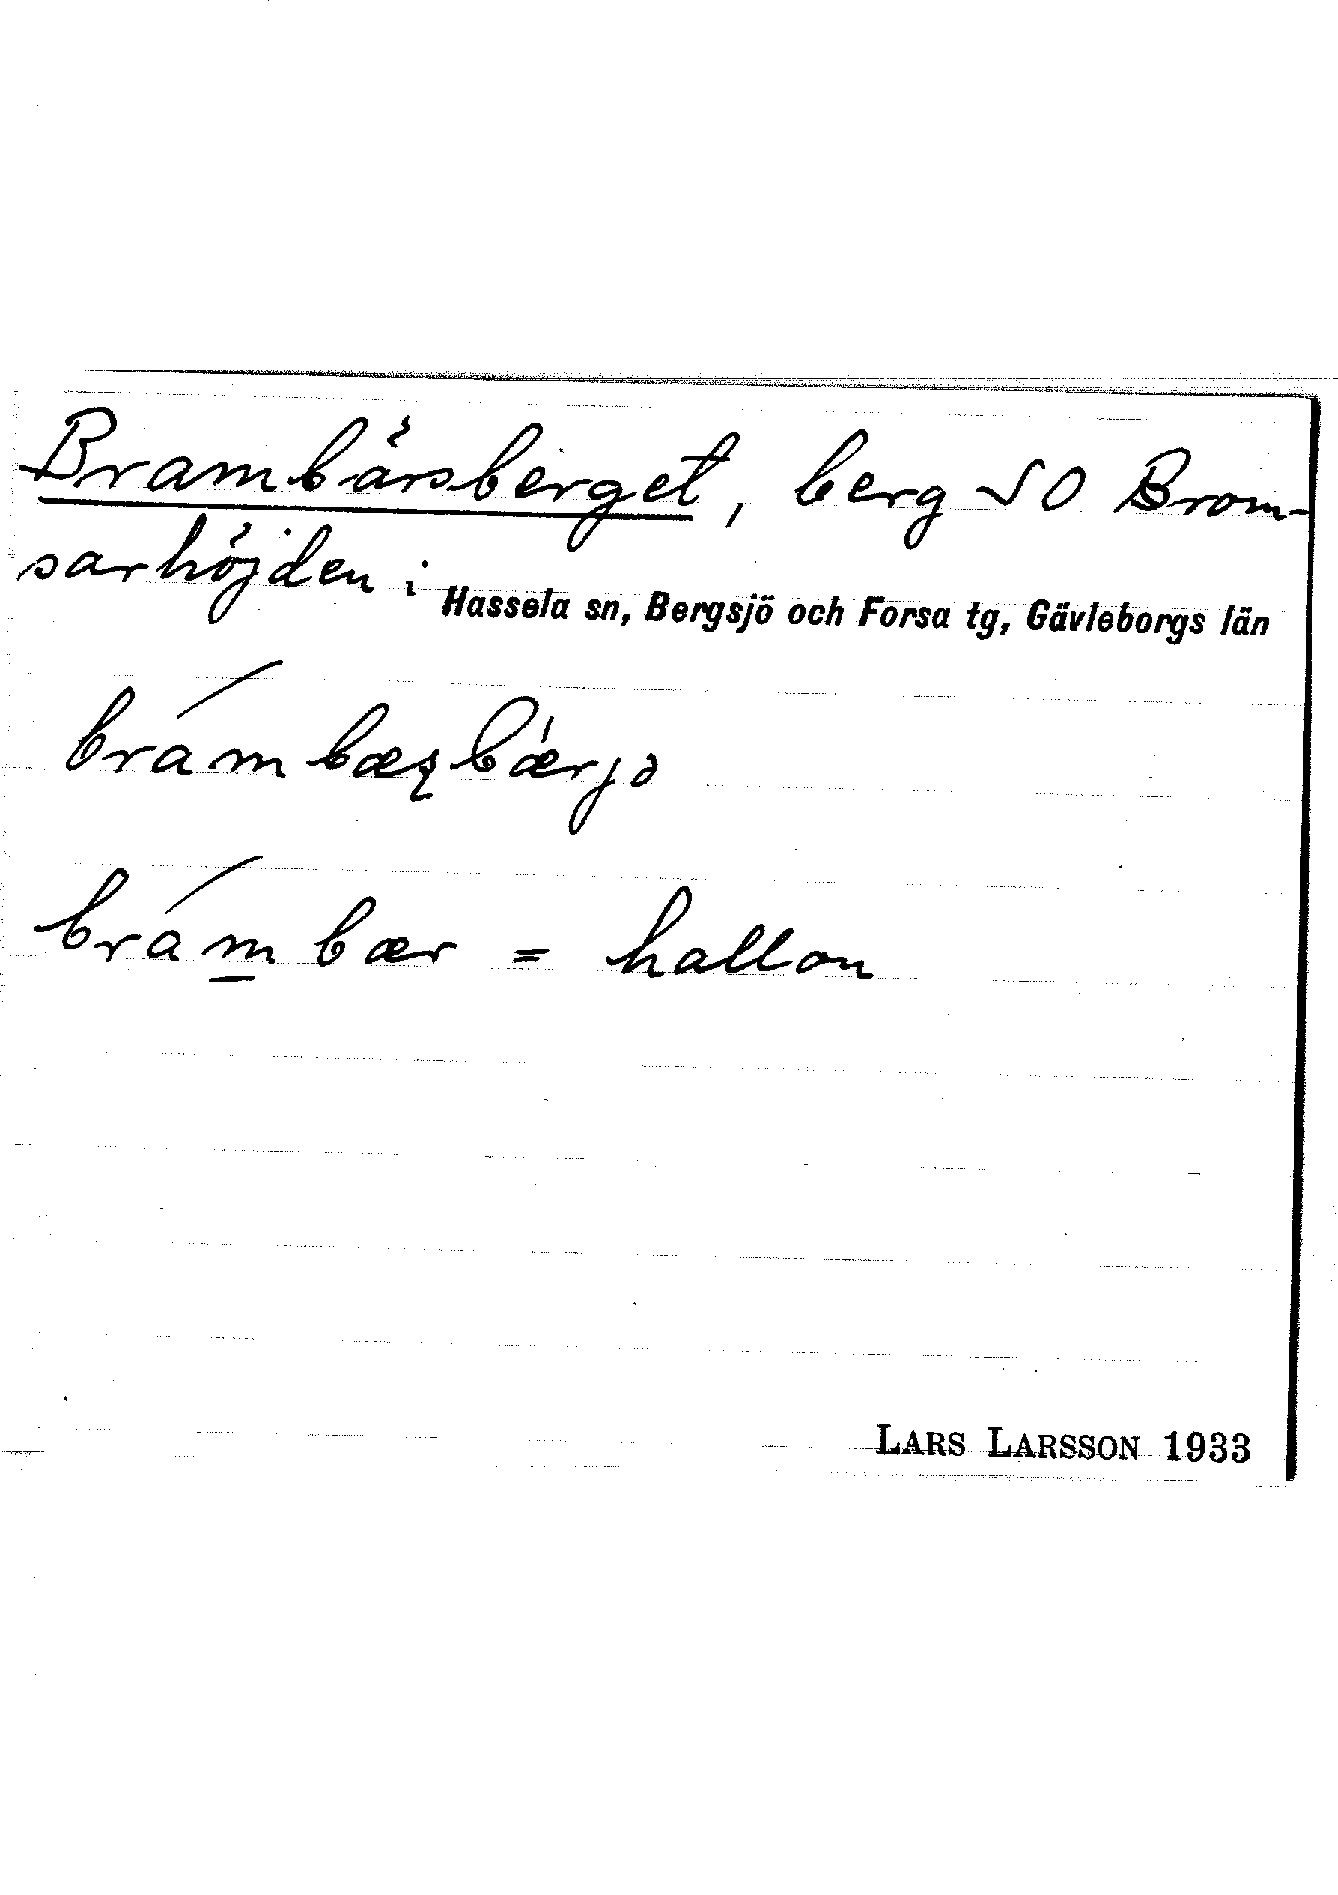 Brambärsberget, berg SO Brom-
sarhöjden i Hassela sn, Bergsjö och Forsa tg, Gävleborgs län
brámbæʂbǽrjə
brám̲bær = hallon
LARS LARSSON 1933